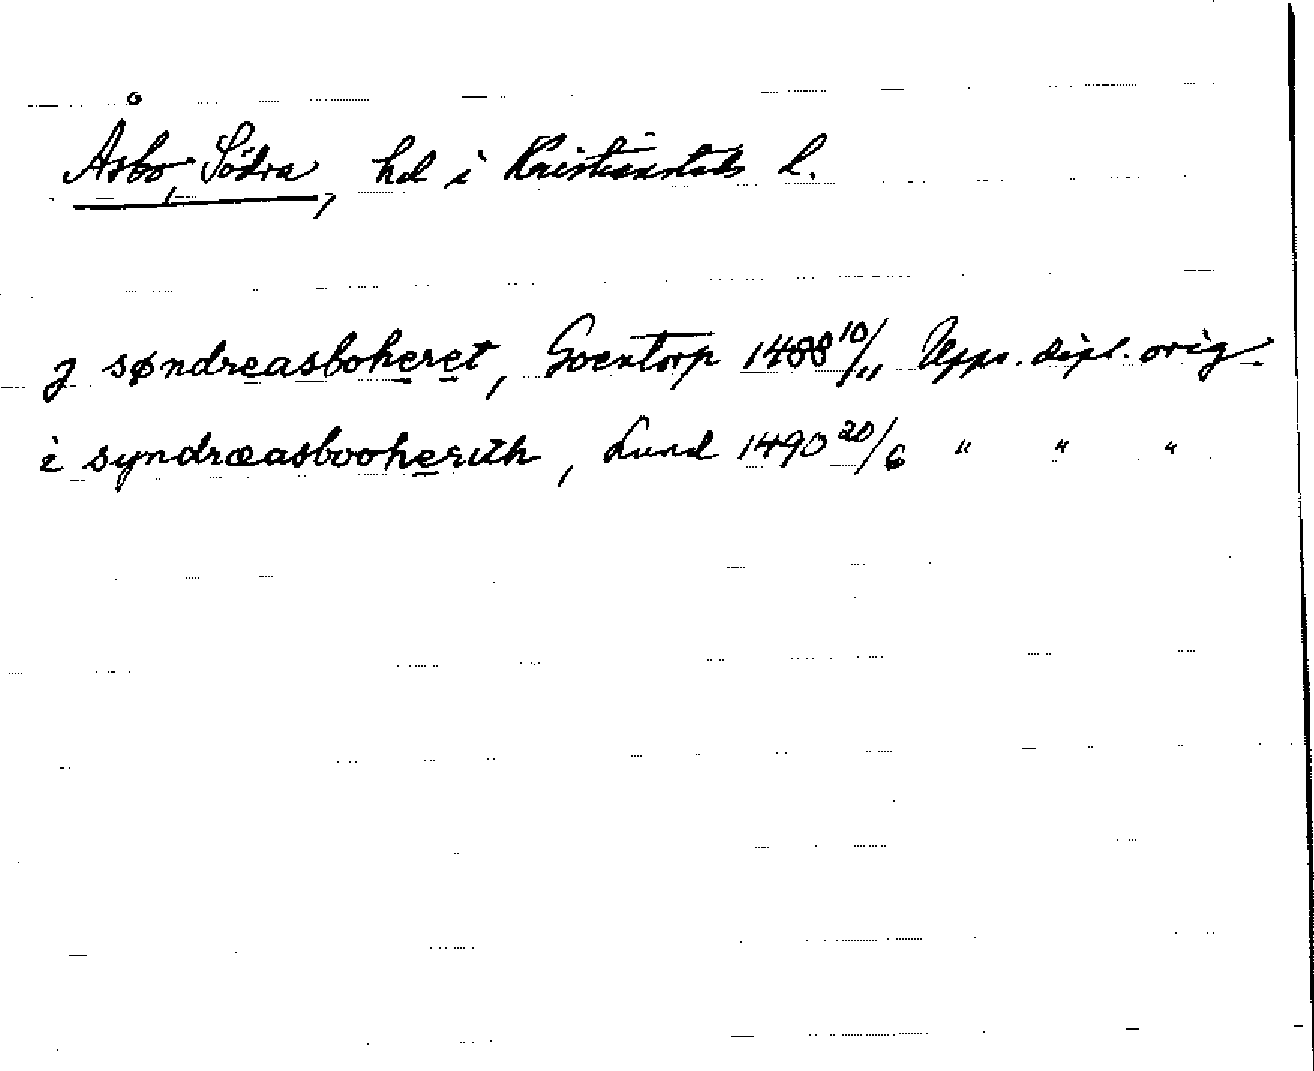 Åsbo, Södra, hd i Kristianstads l.
j søndreasboheret, Goentorp 1488 10/11 Upps. dipl. orig.
i syndræasbooherith, Lund 1490 20/6 " " "